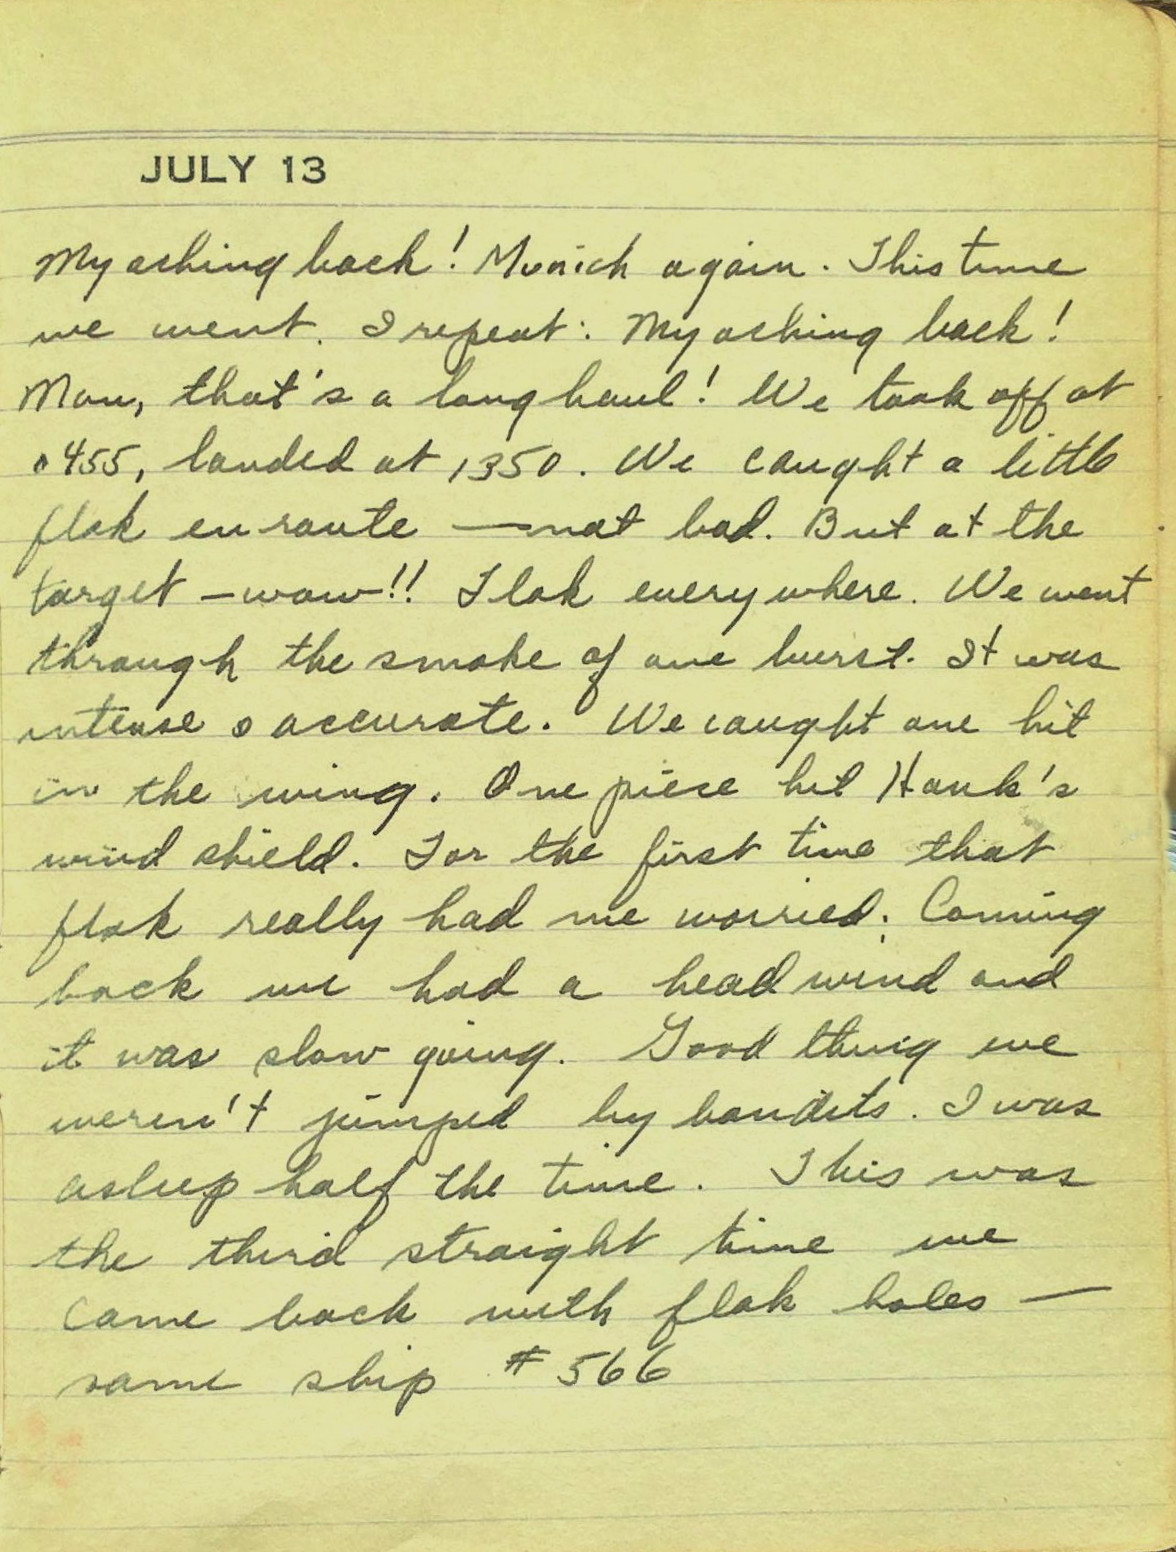 JULY 13
My aching back! Munich again. This time
we went. I repeat: My aching back!
Man, that's a long haul! We took off at
0455, landed at 1350. We caught a little
flak enroute — not bad. But at the
target — wow!! Flak everywhere. We went
through the smoke of one burst. It was
intense & accurate. We caught one hit
in the wing. One piece hit Hank's
wind shield. For the first time that
flak really had me worried. Coming
back we had a head wind and
it was slow going. Good thing we
weren't jumped by bandits. I was
asleep half the time. This was
the third straight time we
came back with flak holes —
same ship #566